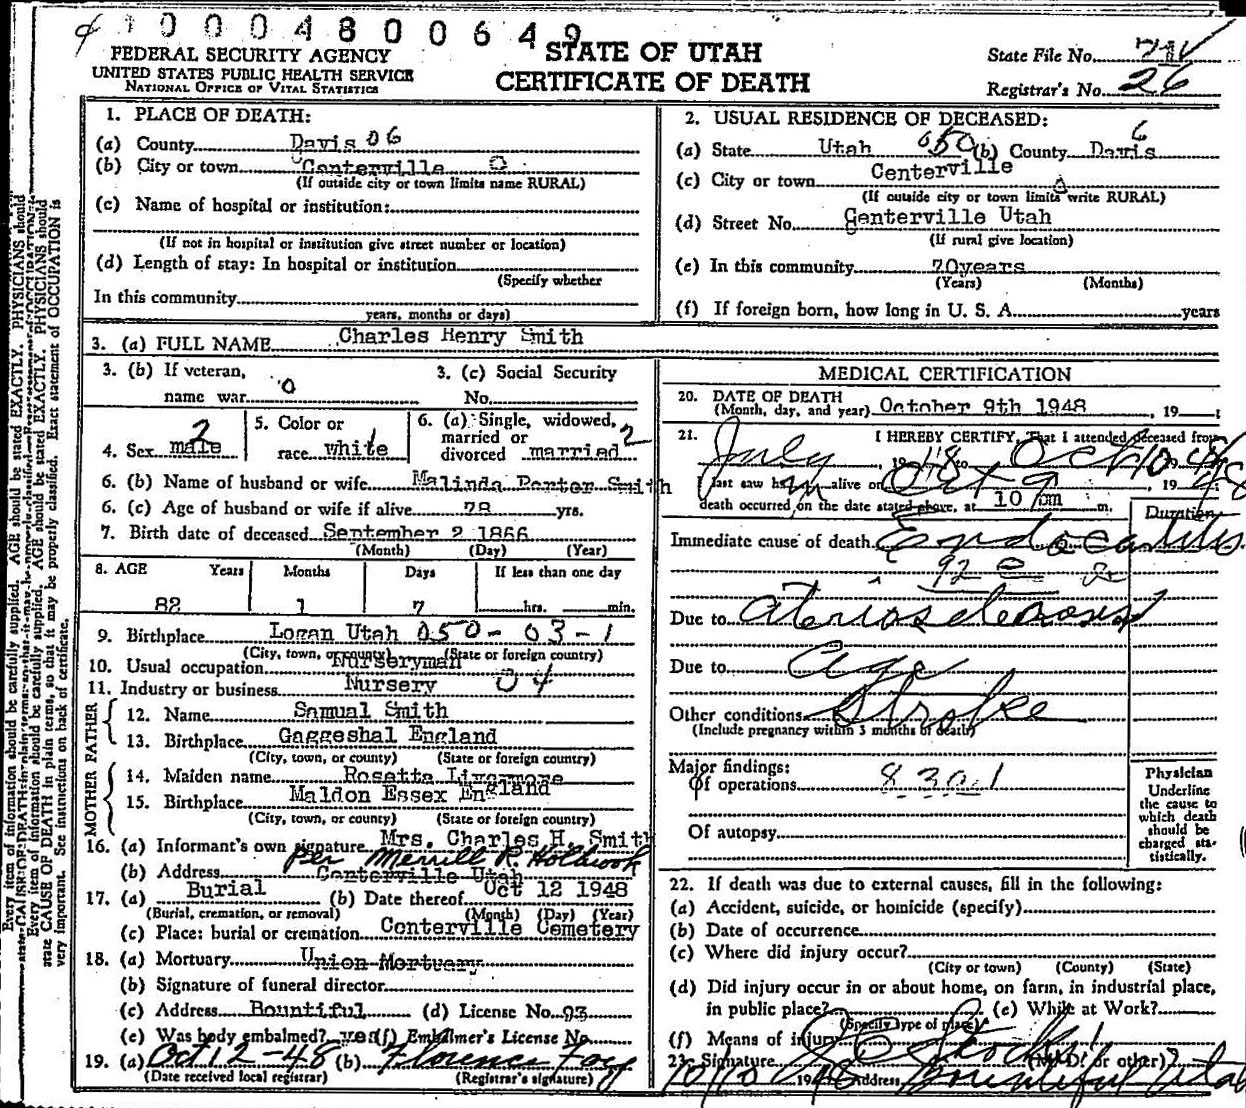 1 0 0 0 4 8 0 0 6 4 9
FEDERAL SECURITY AGENCY
UNITED STATES PUBLIC HEALTH SERVICE
NATIONAL OFFICE OF VITAL STATISTICS
STATE OF UTAH
CERTIFICATE OF DEATH
State File No.
Registrar's No. 26
1. PLACE OF DEATH:
(a) County Davis 06
(b) City or town Centerville 0
(If outside city or town limits name RURAL)
(c) Name of hospital or institution:
(If not in hospital or institution give street number or location)
(d) Length of stay: In hospital or institution
(Specify whether
In this community
years, months or days)
2. USUAL RESIDENCE OF DECEASED:
(a) State Utah 050 (b) County Davis 6
(c) City or town Centerville
(If outside city or town limits write RURAL)
(d) Street No. Centerville Utah
(If rural give location)
(e) In this community 70years
(Years) (Months)
(f) If foreign born, how long in U. S. A. years
3. (a) FULL NAME Charles Henry Smith
3. (b) If veteran, name war 0
3. (c) Social Security No.
4. Sex male 2
5. Color or race white 1
6. (a) Single, widowed, married or divorced married 2
6. (b) Name of husband or wife Malinda Porter Smith
6. (c) Age of husband or wife if alive 78 yrs.
7. Birth date of deceased September 2 1866
(Month) (Day) (Year)
8. AGE Years Months Days If less than one day
82 1 7 hrs. min.
9. Birthplace Logan Utah 050-03-1
(City, town, or county) (State or foreign country)
10. Usual occupation Nurseryman
11. Industry or business Nursery 04
FATHER
12. Name Samual Smith
13. Birthplace Gaggeshal England
(City, town, or county) (State or foreign country)
MOTHER
14. Maiden name Rosetta Livermore
15. Birthplace Maldon Essex England
(City, town, or county) (State or foreign country)
16. (a) Informant's own signature Mrs. Charles H. Smith
per Merrill R. Holbrook
(b) Address Centerville Utah
17. (a) Burial (b) Date thereof Oct 12 1948
(Burial, cremation, or removal) (Month) (Day) (Year)
(c) Place: burial or cremation Centerville Cemetery
18. (a) Mortuary Union Mortuary
(b) Signature of funeral director
(c) Address Bountiful (d) License No. 93
(e) Was body embalmed? yes (f) Embalmer's License No.
19. (a) Oct 12-48 (b) Florence Foy
(Date received local registrar) (Registrar's signature)
MEDICAL CERTIFICATION
20. DATE OF DEATH
(Month, day, and year) October 9th 1948, 19
21. I HEREBY CERTIFY, That I attended deceased from
July, 1948 to Oct 10, 1948
I last saw him alive on Oct 9, 1948
death occurred on the date stated above, at 10 pm m.
Duration
Immediate cause of death Endocarditis
92
Due to ateriosclerosis
Due to age
Other conditions Stroke
(Include pregnancy within 3 months of death)
Major findings:
Of operations 830.1
Of autopsy
Physician
Underline
the cause to
which death
should be
charged sta-
tistically.
22. If death was due to external causes, fill in the following:
(a) Accident, suicide, or homicide (specify)
(b) Date of occurrence
(c) Where did injury occur?
(City or town) (County) (State)
(d) Did injury occur in or about home, on farm, in industrial place,
in public place? (e) While at Work?
(Specify type of place)
(f) Means of injury
23. Signature (M. D. or other)
10/10 1948 Address Bountiful Utah
Every item of information should be carefully supplied. AGE should be stated EXACTLY. PHYSICIANS should
state CAUSE OF DEATH in plain terms, so that it may be properly classified. Exact statement of OCCUPATION is
very important. See instructions on back of certificate.